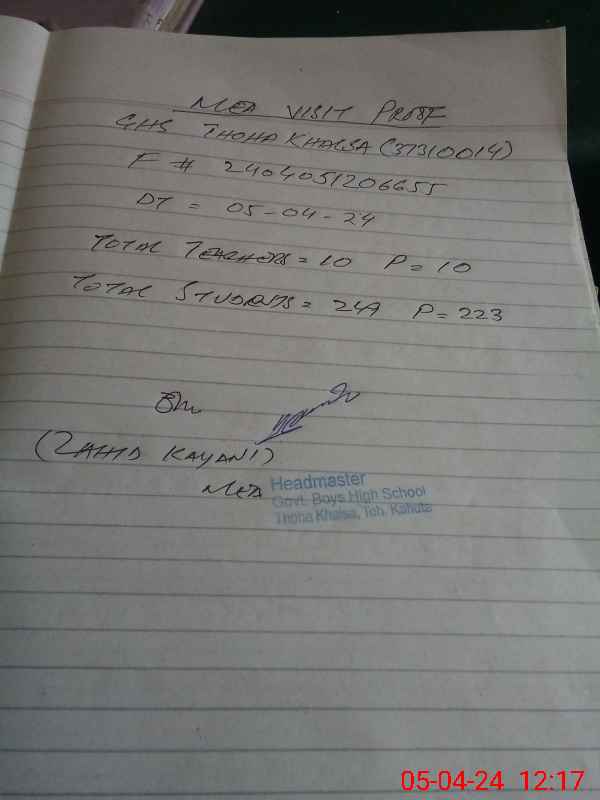 MEA VISIT PROOF
GHS THOHA KHALSA (37310014)
F # 2404051206655
DT = 05-04-24
TOTAL TEACHERS = 10 P = 10
TOTAL STUDENTS = 24A P = 223
(ZAHID KAYANI)
MEA
Headmaster
Govt. Boys High School
Thoha Khalsa, Teh. Kahuta
05-04-24 12:17